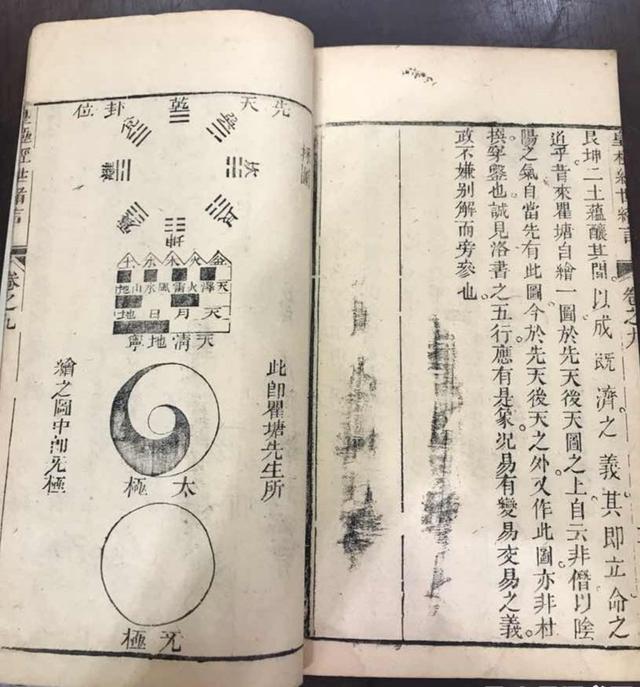 皇極經世緒言
卷之九
艮坤二土蘊釀其間以成既濟之義其即立命之
道乎昔來瞿塘自繪一圖於先天後天圖之上自云非僭以陰
陽之氣自當先有此圖今於先天後天之外又作此圖亦非村
撰穿鑿也誠見洛書之五行應有是象況易有變易交易之義
政不嫌別解而旁參也
先天乾卦位
兌
巽
坎
艮
坤
金火木水土
天澤火雷風水山地
天月日地
天清地寧
此即瞿塘先生所
太極
繪之圖中即无極
无極
皇極經世緒言
卷之九